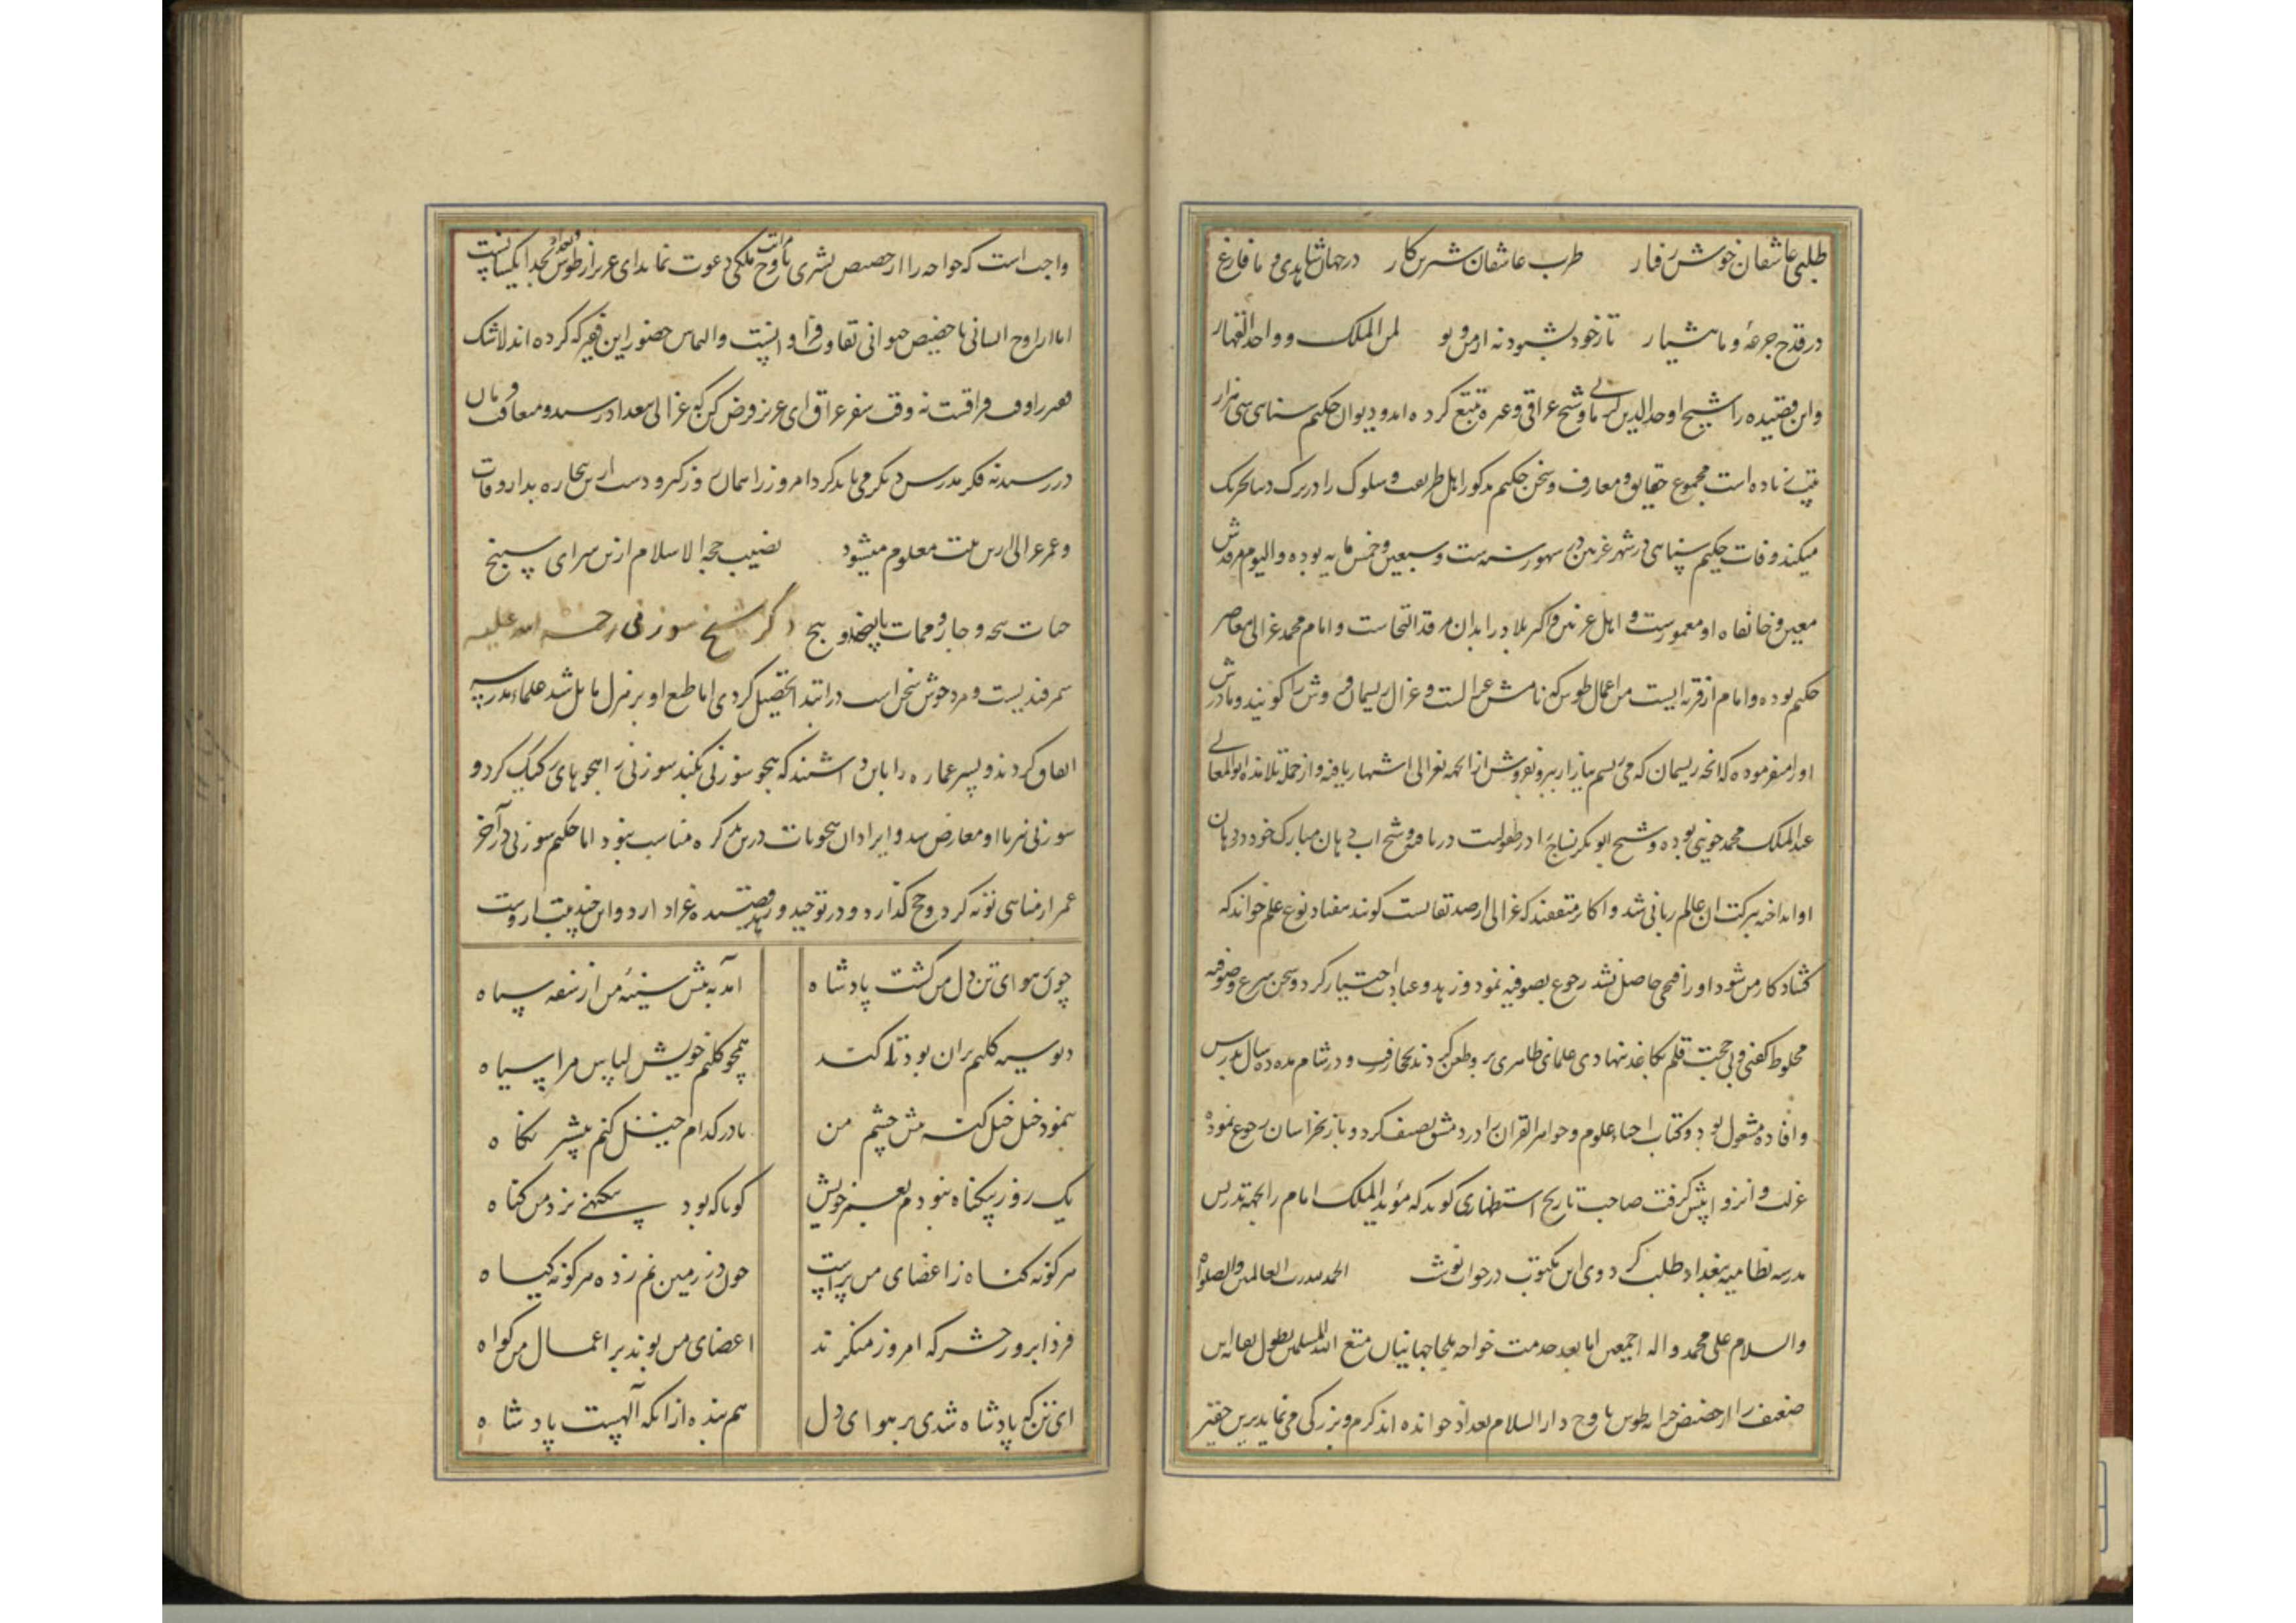 طلب ای عاشقان خوش رفتار طرب ای عاشقان شیرین کار در جهان شاهدی و ما فارغ
در قدح جرعهٔ و ما هشیار تا ز خود بشنود نه از من و تو لمن الملک و واحد القهار
و این قصیده را شیخ اوحدالدین کرمانی و شیخ عراقی و غیره تتبع کرده اند و دیوان حکیم سنایی سی هزار
بیت زیاده است مجموع حقایق و معارف و سخن حکیم مذکور اهل طریقت و سلوک را در ترک دنیا تحریک
میکند وفات حکیم سنایی در شهر غزنین در شهور سنه ست و سبعین و خمس مایه بوده و الیوم مرقدش
معین و خانقاه او معمورست و اهل غزنین و اکثر بلاد را بدان مرقد التجاست و امام محمد غزالی معاصر
حکیم بوده و امام از قریه ایست من اعمال طوس که نامش غزالست و غزال ریسمان فروش را گویند و مادرش
او را میفرموده که انچه ریسمان که می ریسم ببازار ببر و بفروش از انجهه بغزالی اشتهار یافته و از جمله تلامذه ابوالمعالی
عبدالملک محمد جوینی بوده و شیخ ابوبکر نساج را در طفولیت دریافته و شیخ اب دهان مبارک خود در دهان
او انداخته ببرکت ان عالم ربانی شد و اکابر متفقند که غزالی از صدیقانست گویند هفتاد نوع علم خواند که
گشاد کار من شود او را فتحی حاصل نشد رجوع بصوفیه نمود و زهد و عبادت اختیار کرد و سخن شرع و صوفیه
مخلوط گفتی و بی حجت قلم بکاغذ ننهادی علمای ظاهری بر و طعن کردند بحجاز رفت و در شام مده ده سال بدرس
و افاده مشغول بود و کتاب احیاء علوم و جواهر القران را در دمشق تصنیف کرد و باز بخراسان رجوع نموده
عزلت و انزوا پیش گرفت صاحب تاریخ استظهاری گوید که مؤید الملک امام را بجهه تدریس
مدرسه نظامیه بغداد طلب کرد وی این مکتوب در جواب نوشت الحمد لله رب العالمین والصلوه
والسلام علی محمد و اله اجمعین اما بعد خدمت خواجه ملجا جهانیان متع الله المسلمین بطول بقائه این
ضعیف را از حضیض خرابه طوس باوج دارالسلام بغداد خوانده اند کرم و بزرگی می نماید برین حقیر
واجب است که خواجه را از حضیض بشری باوج مراتب ملکی دعوت نماید ای عزیز از طوس و بغداد بخدا یکسانست
اما از اوج انسانی تا حضیض حیوانی تفاوت فراوانست و التماس حضور این فقیر که کرده اند لاشک
فقیر را وقت فراقست نه وقت سفر عراق ای عزیز فرض کن که غزالی ببغداد رسید و متعاقب فرمان
در رسید نه فکر مدرس دیگر می باید کرد امروز را همان روز گیر و دست از این بیچاره بدار وفات
و عمر غزالی ازین بیت معلوم میشود نصیب حجه الاسلام ازین سرای سپنج
حیات پنجه و چار و ممات پانصد و پنج ذکر شیخ سوزنی رحمه الله علیه
سمرقندیست و مرد خوش سخن است در ابتدا تحصیل کردی اما طبع او بر هزل مایل شد علماء مدرسه
اتفاق کردند و پسر عماره را باین داشتند که هجو سوزنی بکند سوزنی را هجوهای رکیک کرد و
سوزنی نیز با او معارض شد و ایراد ان هجویات درین تذکره مناسب ننمود اما حکیم سوزنی در آخر
عمر از مناهی توبه کرد و حج گذارد و در توحید و زهد قصیده غرا دارد و این چند بیت از وست
چون هوای تن دل من گشت پادشاه آمد به پیش سینهٔ من از سفه سپاه
دیو سیه گلیم بران بود تا کند همچو گلیم خویش لباس مرا سیاه
بنمود خیل خیل گنه پیش چشم من تا در کدام خیل کنم بیشتر نگاه
یک روز بیگناه نبودم بعمر خویش گویا که بود بی گنهی نزد من گناه
هر گونه گناه ز اعضای من براست چون در زمین نم زده هر گونه گیاه
فردا بروز حشر که امروز منکرند اعضای من بوند بر اعمال من گواه
ای تن که پادشاه شدی بر هوای دل هم بنده از انکه آلهست پادشاه